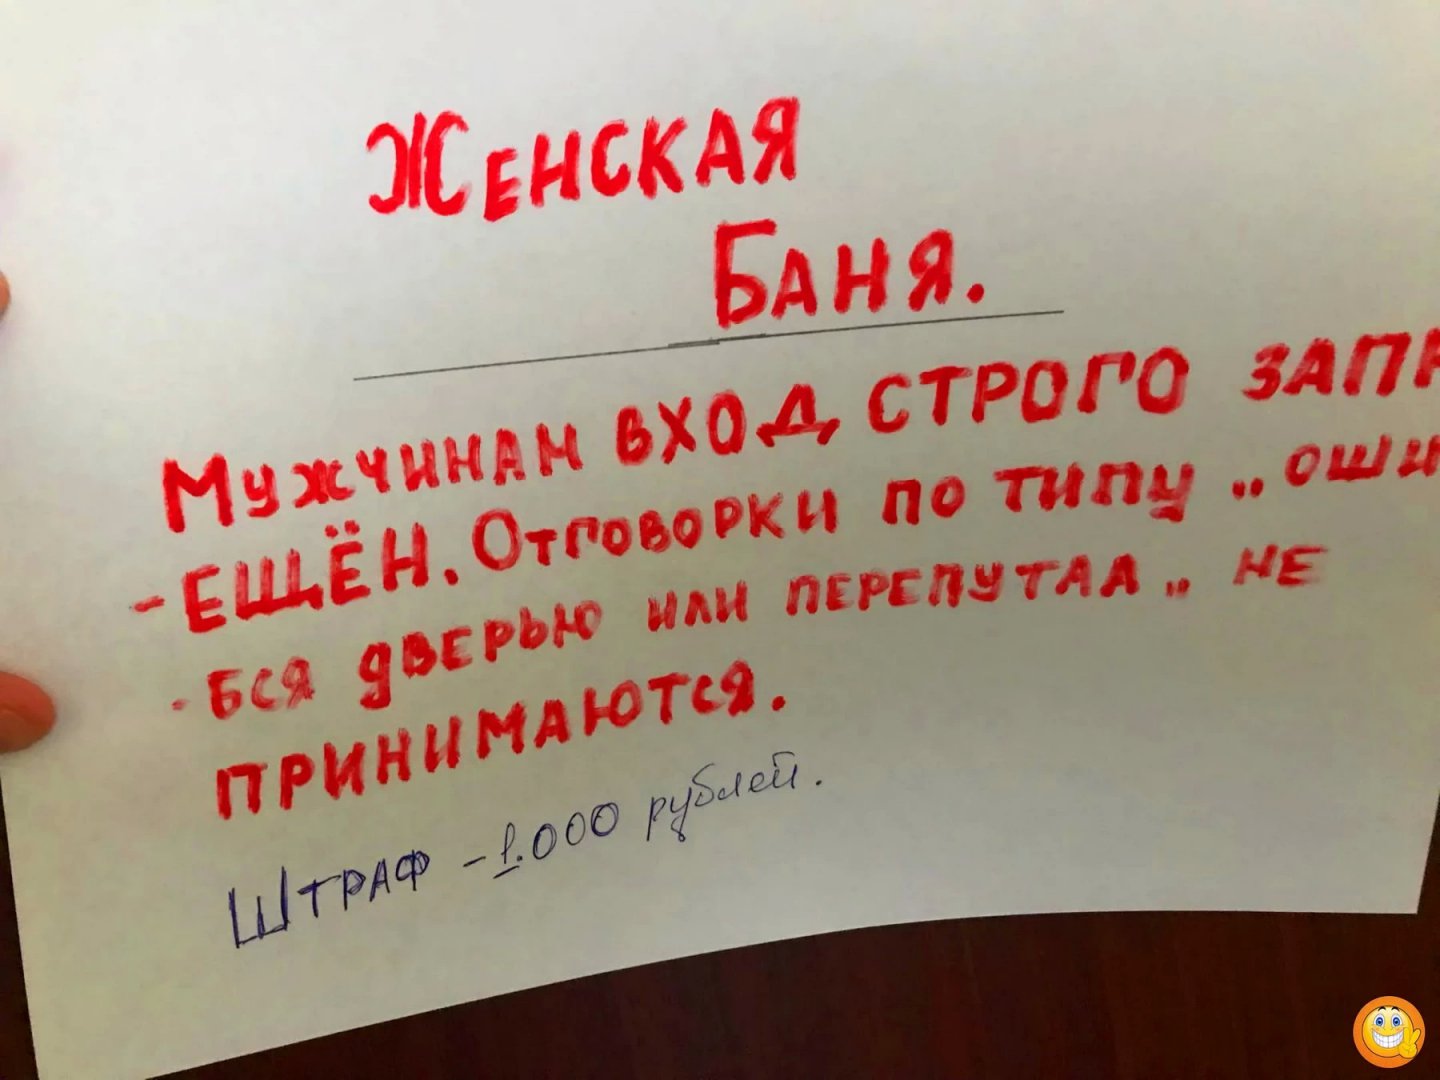 Женская
Баня.
Мужчинам вход строго запр
-ещён. Отговорки по типу „оши
-бся дверью или перепутал„ не
принимаются.
Штраф - 1.000 рублей.